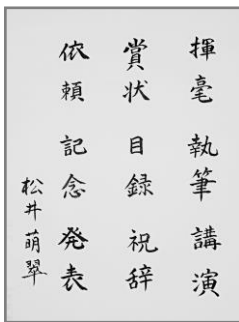 揮毫 執筆 講演
賞状 目録 祝辞
依頼 記念 発表
松井萌翠